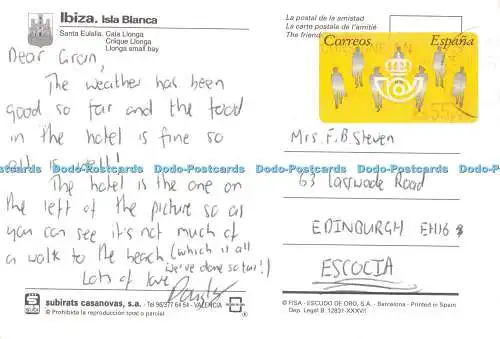 Ibiza. Isla Blanca
Santa Eulalia. Cala Llonga
Crique Llonga
Llonga small bay
Dear Gran,
The weather has been
good so far and the food
in the hotel is fine so
all is well!
The hotel is the one on
the left of the picture so as
you can see it's not much of
a walk to the beach (which is all
we've done so far!)
Lots of love
subirats casanovas, s.a. - Tel 96/377 64 54 - VALENCIA
® Prohibida la reproducción total o parcial
La postal de la amistad
La carte postale de l'amitié
The friend
Correos España
55
Mrs. F.B. Steven
63 Lasswade Road
EDINBURGH EH16
ESCOCIA
© FISA - ESCUDO DE ORO, S.A. - Barcelona - Printed in Spain
Dep. Legal B. 12831-XXXVII
Dodo-Postcards Dodo-Postcards Dodo-Postcards Dodo-Postcards Dodo-Postcards